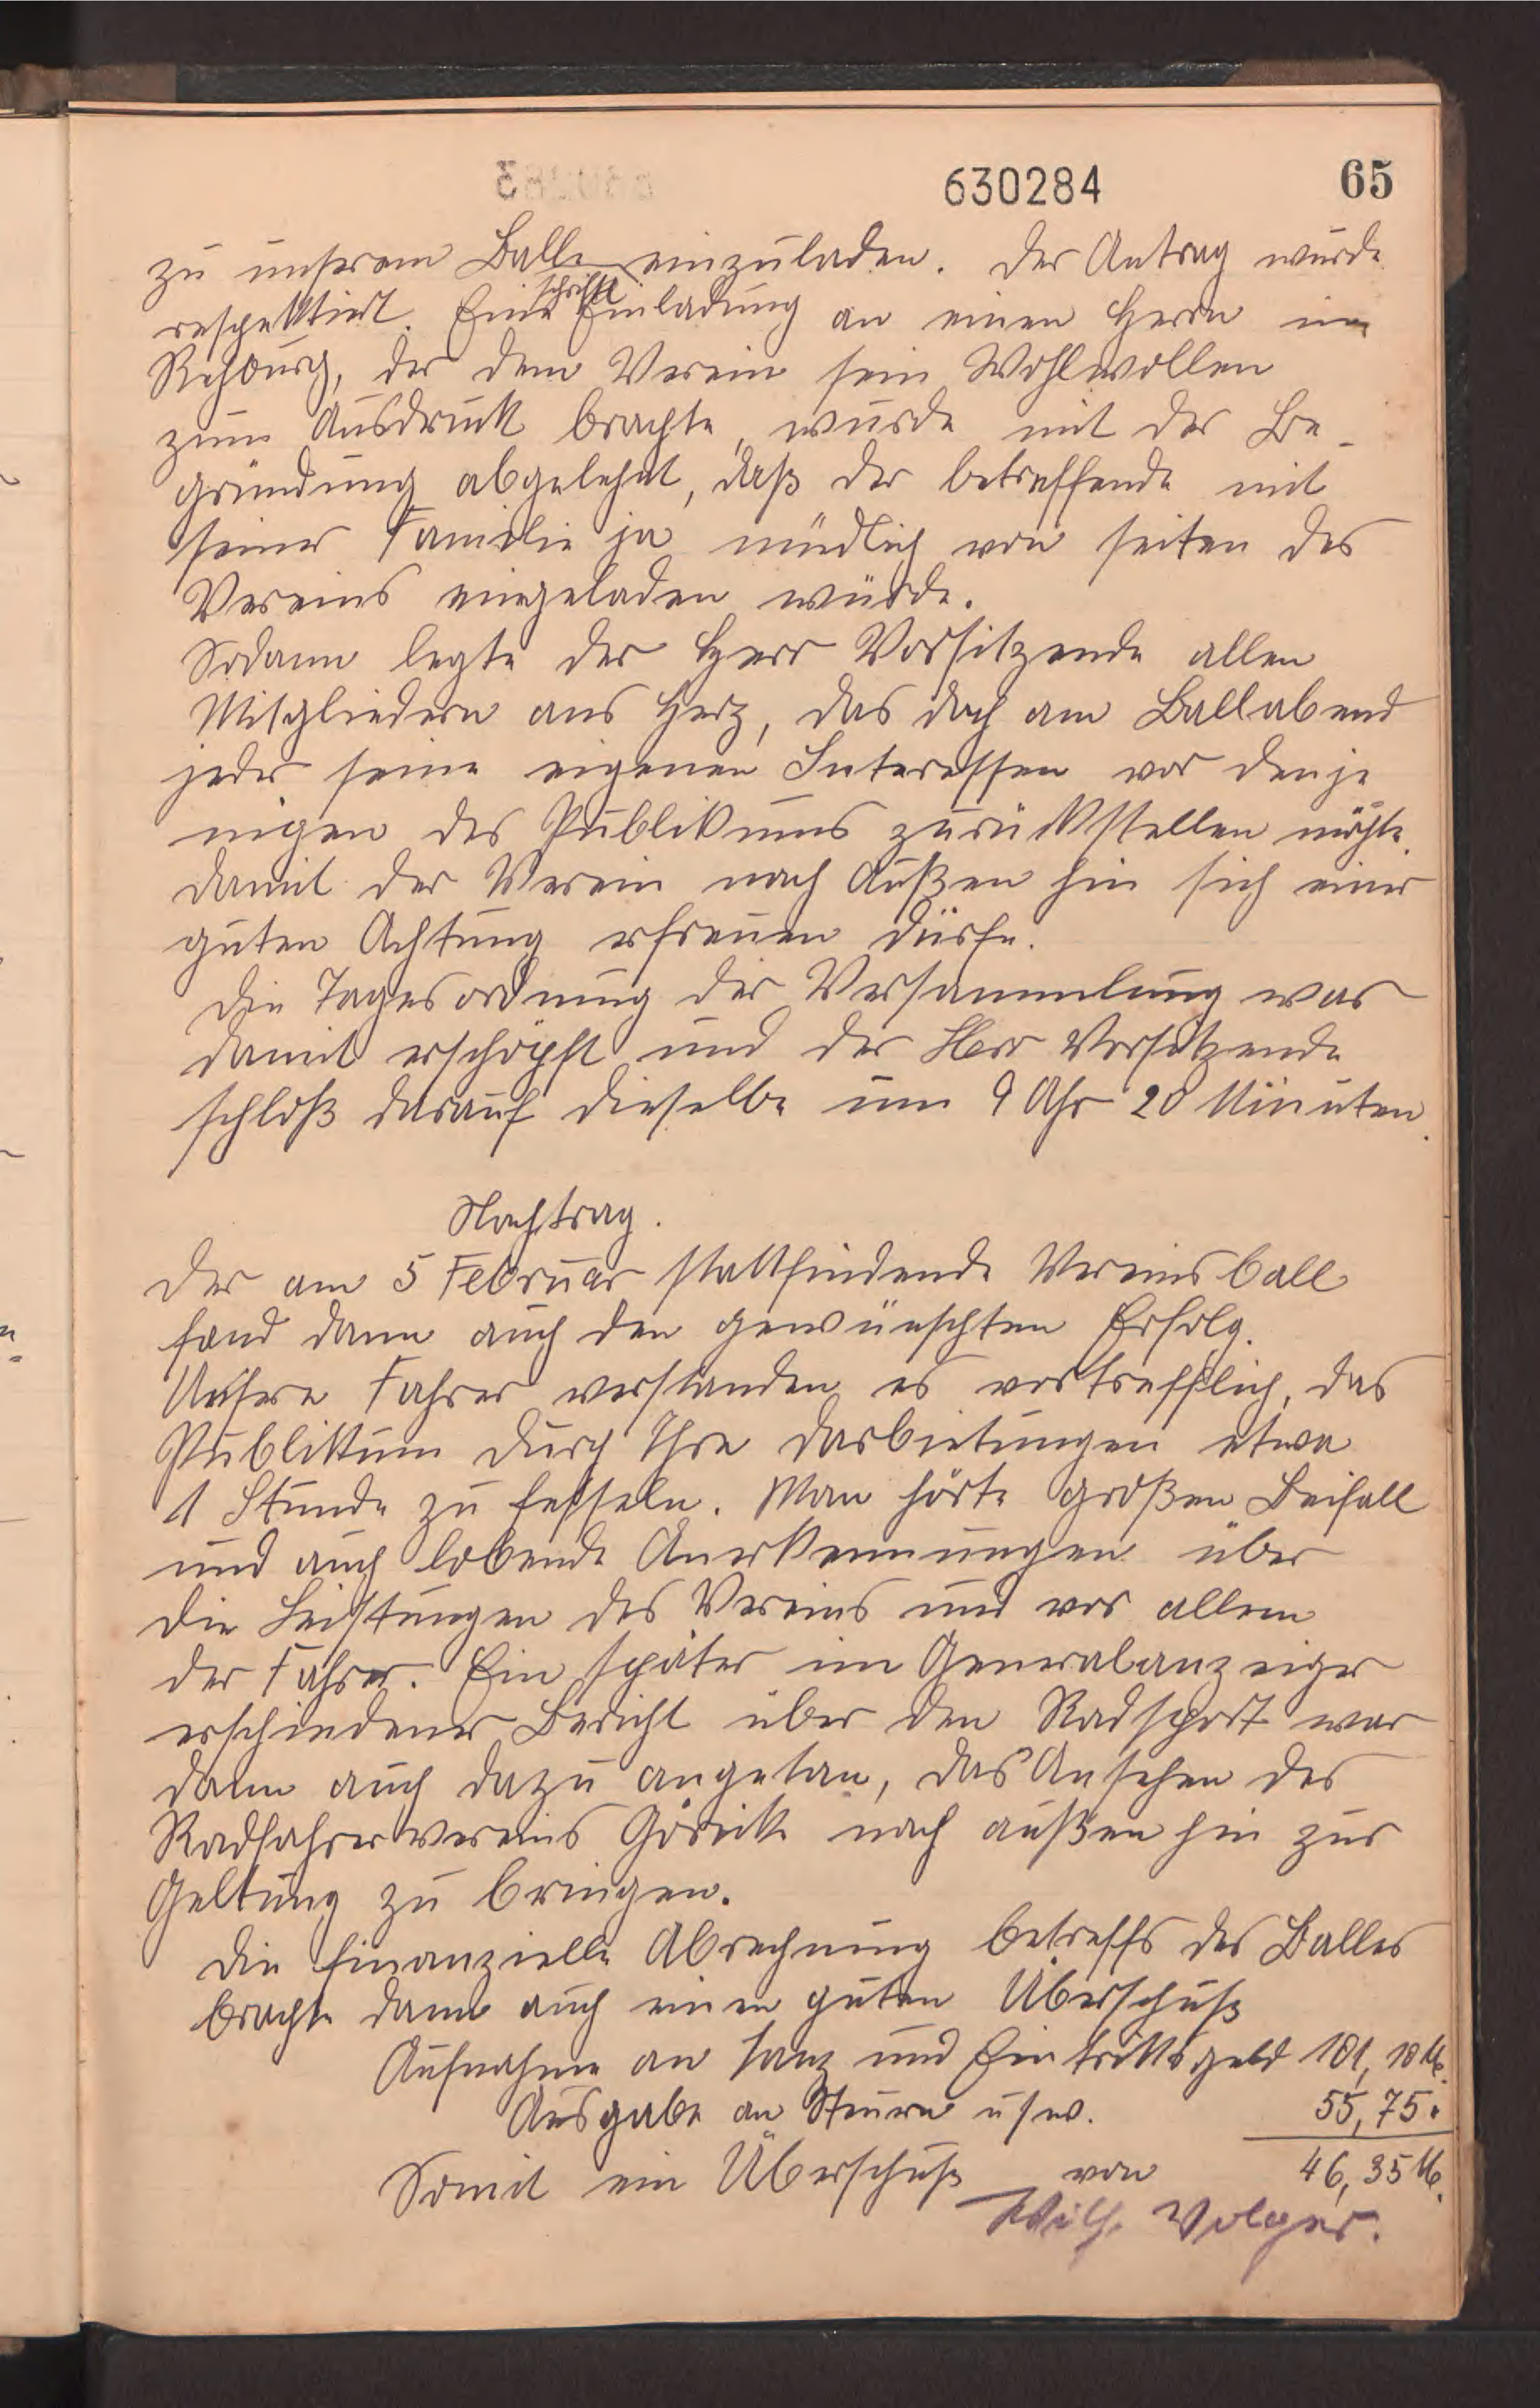 630284 65
zu unserem Balle einzuladen. Der Antrag wurde
respektiert. Eine schriftl Einladung an einen Herrn in
Rehburg, der dem Verein sein Wohlwollen
zum Ausdruck brachte, wurde mit der Be-
gründung abgelehnt, daß der betreffende mit
seiner Familie ja mündlich von seiten des
Vereins eingeladen würde.
Sodann legte der Herr Vorsitzende allen
Mitgliedern ans Herz, das doch am Ballabend
jeder seine eigenen Interessen vor denje
nigen des Publikums zurückstellen möchte,
damit der Verein nach Außen hin sich einer
guten Achtung erfreuen dürfe.
Die Tagesordnung der Versammlung war
damit erschöpft und der Herr Vorsitzende
schloß darauf dieselbe um 9 Uhr 20 Minuten.
Nachtrag.
Der am 5 Februar stattfindende Vereinsball
fand dann auch den gewünschten Erfolg.
Unsere Fahrer verstanden es vortrefflich, das
Publikum durch Ihre Darbietungen etwa
1 Stunde zu fesseln. Man hörte großen Beifall
und auch lobende Anerkennungen über
die Leistungen des Vereins und vor allem
der Fahrer. Ein später im Generalanzeiger
erschiedener Bericht über den Radsport war
dann auch dazu angetan, das Ansehen des
Radfahrervereins Göricke nach außen hin zur
Geltung zu bringen.
Die finanzielle Abrechnung betreffs des Balles
brachte dann auch einen guten Überschuß
Aufnahme an Tanz und Eintrittsgeld 101,10 M.
Ausgabe an Steuern usw. 55,75.
Somit ein Überschuß von 46,35 M.
Wilh. Volger.